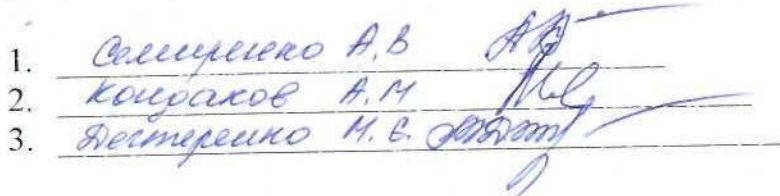 1. Семиренко А.В
2. Кондаков А.М
3. Дегтеренко М.Є.